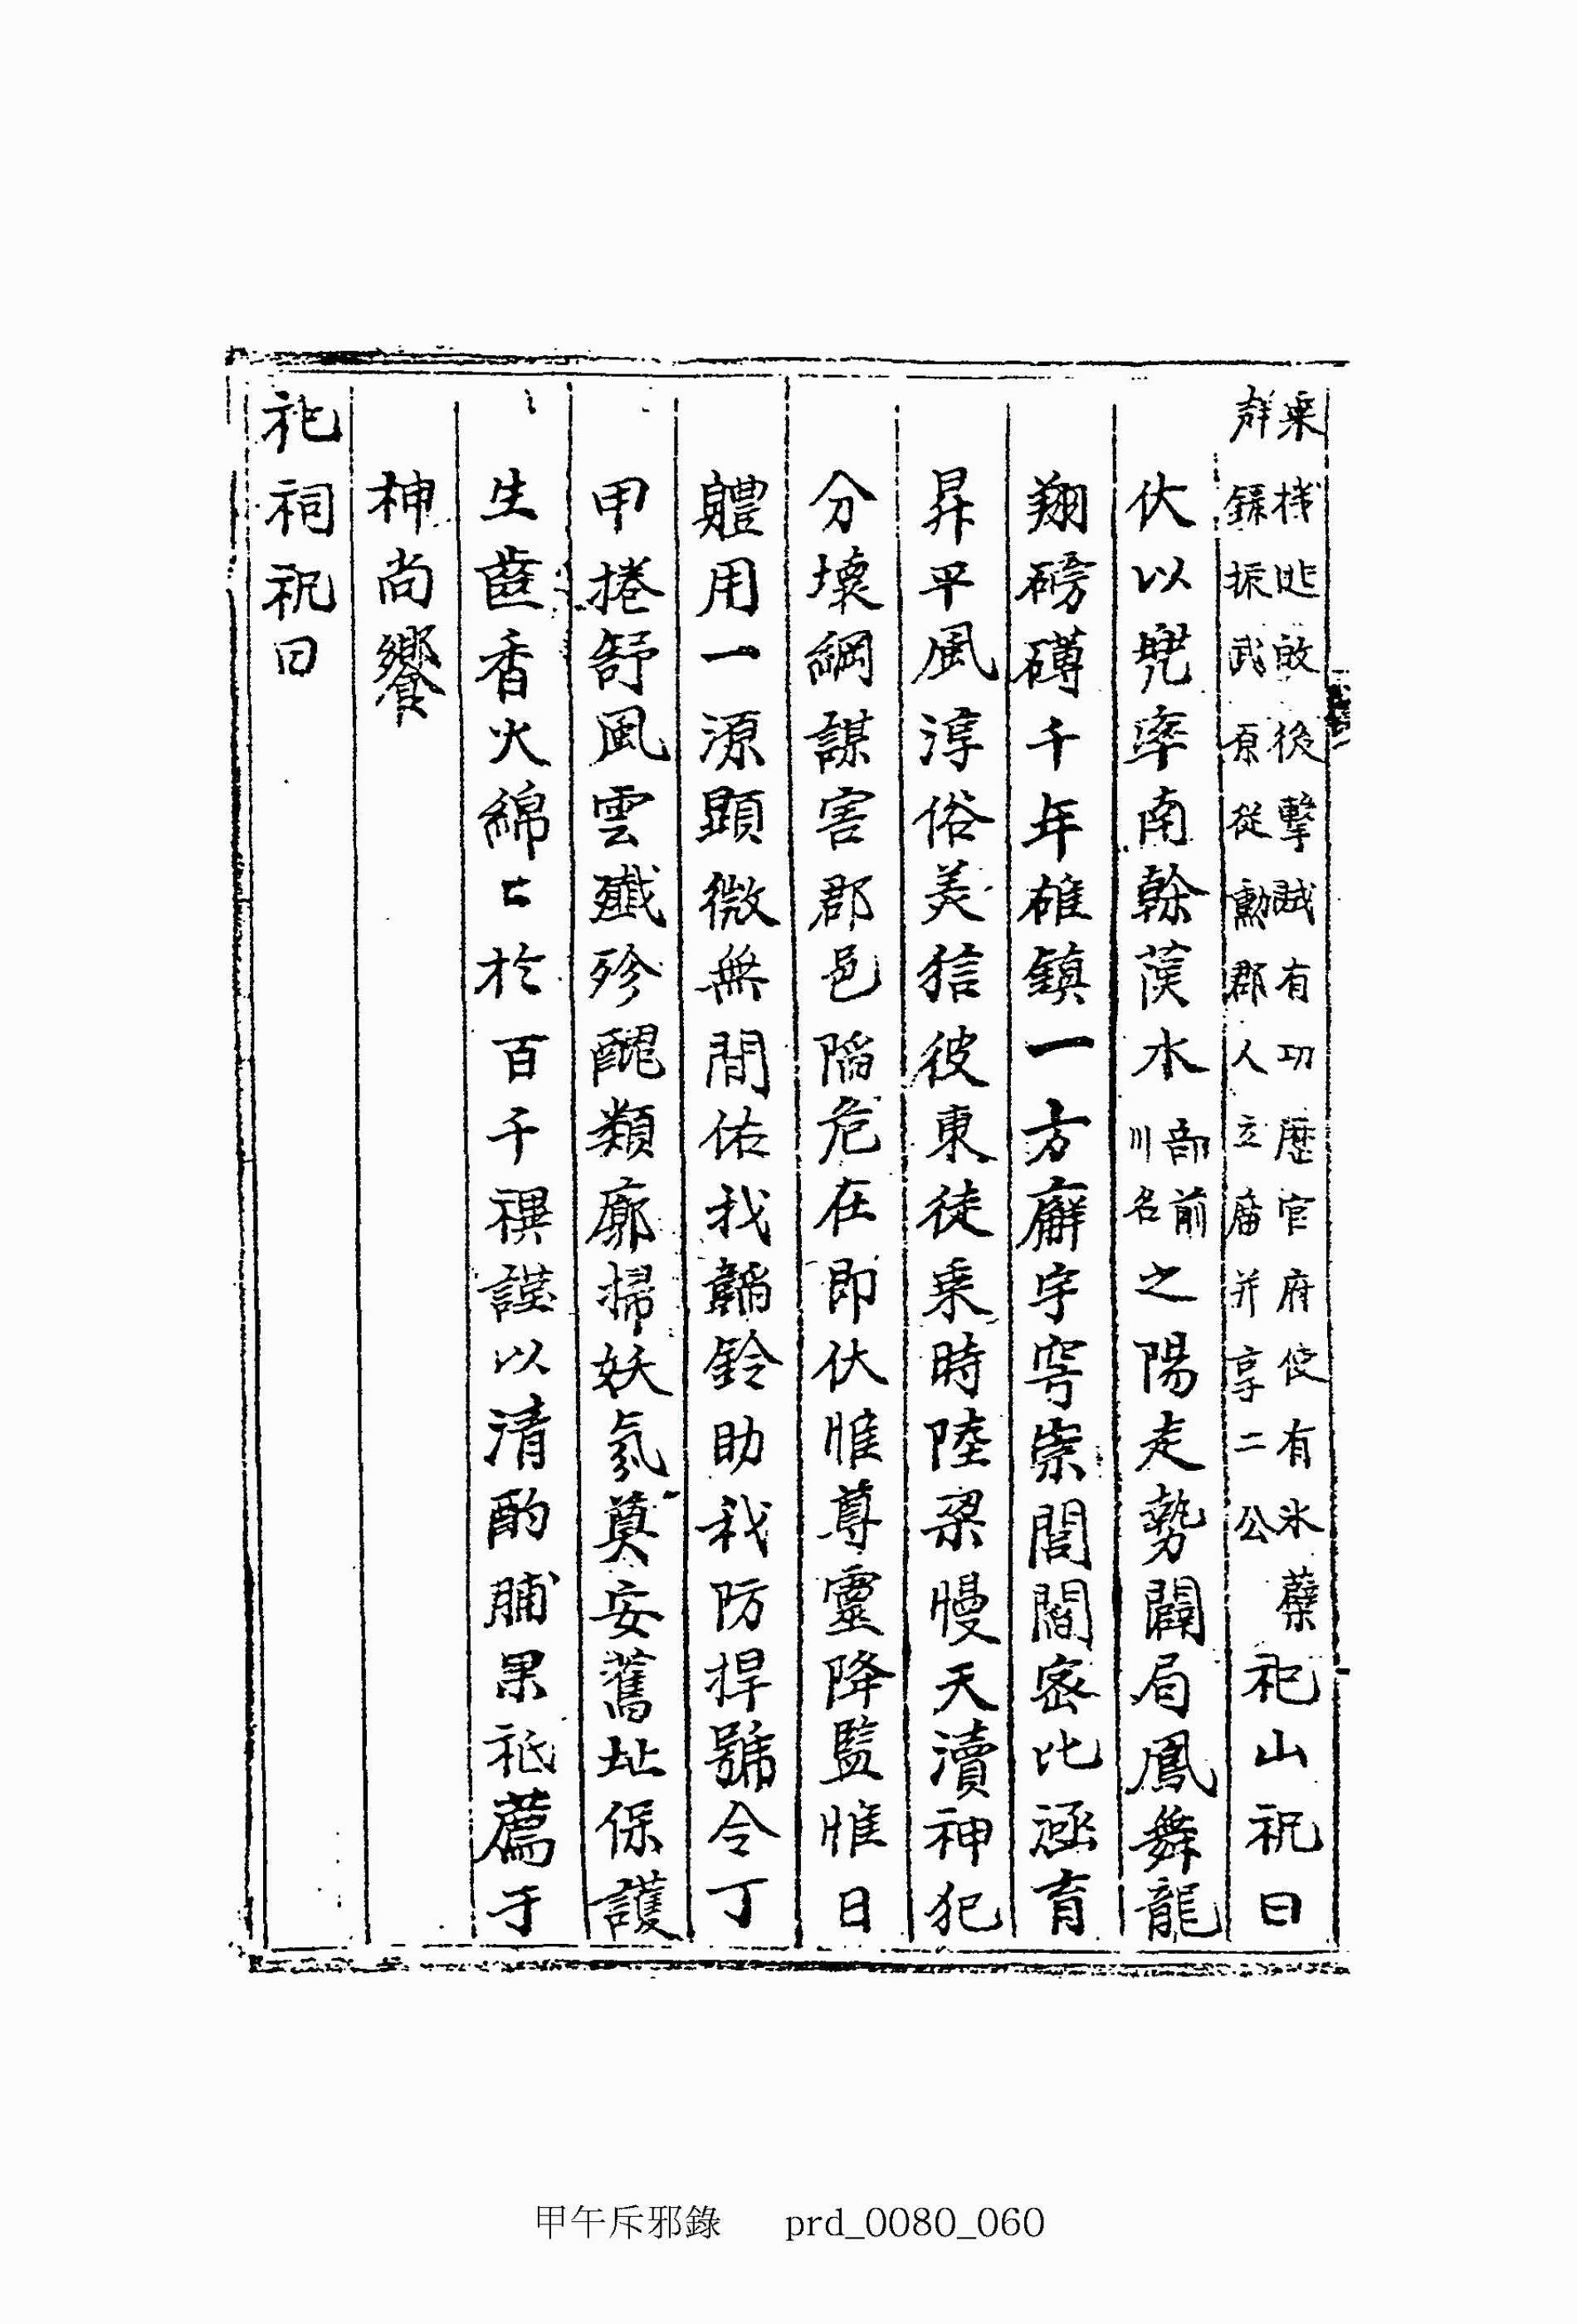 乘機迯啟後擊越有功歷官府使有氷蘗
辥録振武原從勳郡人立廟并享二公
祀山祝曰
伏以兠率南榦蓂水部前川名之陽走勢闢局鳳舞龍
翔磅礴千年雄鎮一方廨宇穹崇閭閻密比涵育
昇平風淳俗美狺彼東徒乘時陸梁慢天瀆神犯
分壞綱謀害郡邑陷危在即伏惟尊靈降監惟日
軆用一源顯微無間佑我韜鈴助我防捍號令丁
甲捲舒風雲殲殄醜類廓掃妖氛奠安舊址保護
生齒香火綿匕於百千禩謹以清酌脯果祗薦于
神尙饗
祀祠祝曰
甲午斥邪錄 prd_0080_060